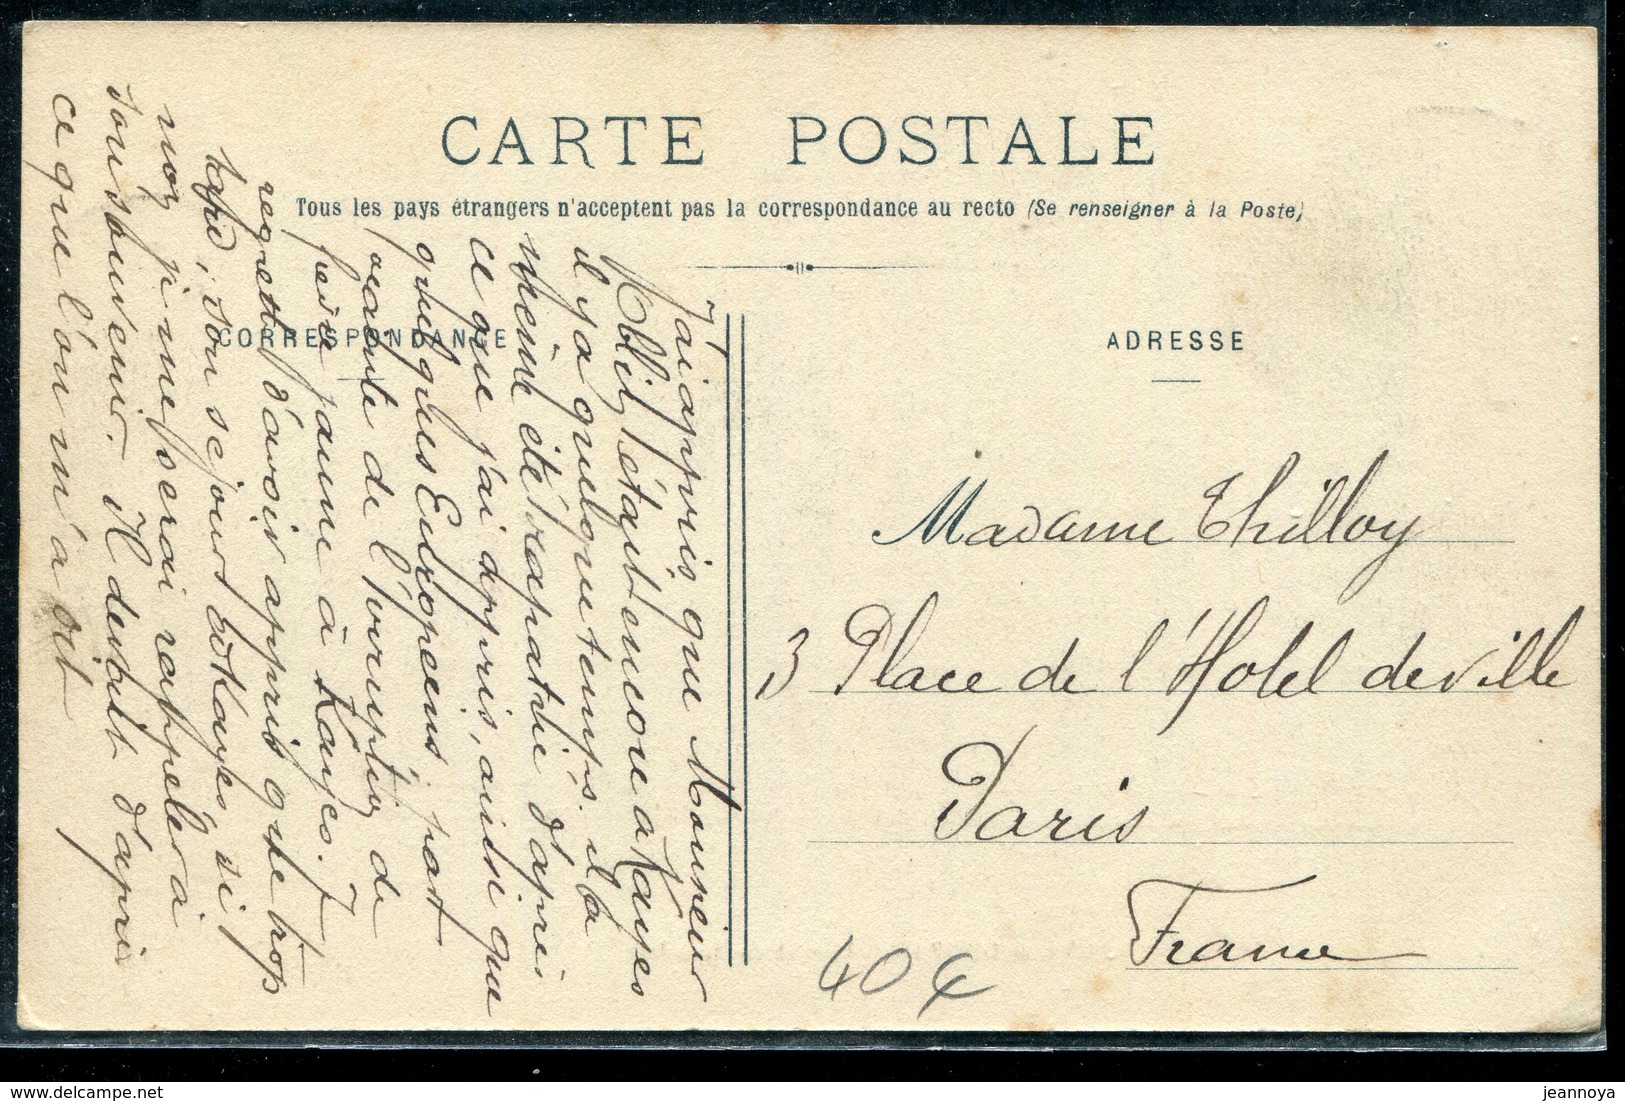 CARTE POSTALE
Tous les pays étrangers n'acceptent pas la correspondance au recto (Se renseigner à la Poste)
CORRESPONDANCE
ADRESSE
J'ai appris que Monsieur
était encore a Kayes
il y a quelque temps. il a
même été rapatrié d'apris
ce que j'ai appris, ainsi que
quelques Européens, part
crainte de l'irruption de
fievre jaune à Kayes. J
regrett d'avoir appris que trop
tard, son sejour a Kayes, si
non, je me serai rappeler à
son souvenir. Il devait d'apris
ce que l'on m'a dit
Madame Thilloy
3 Place de l'Hotel de ville
Paris
France
40 €
jeannoya